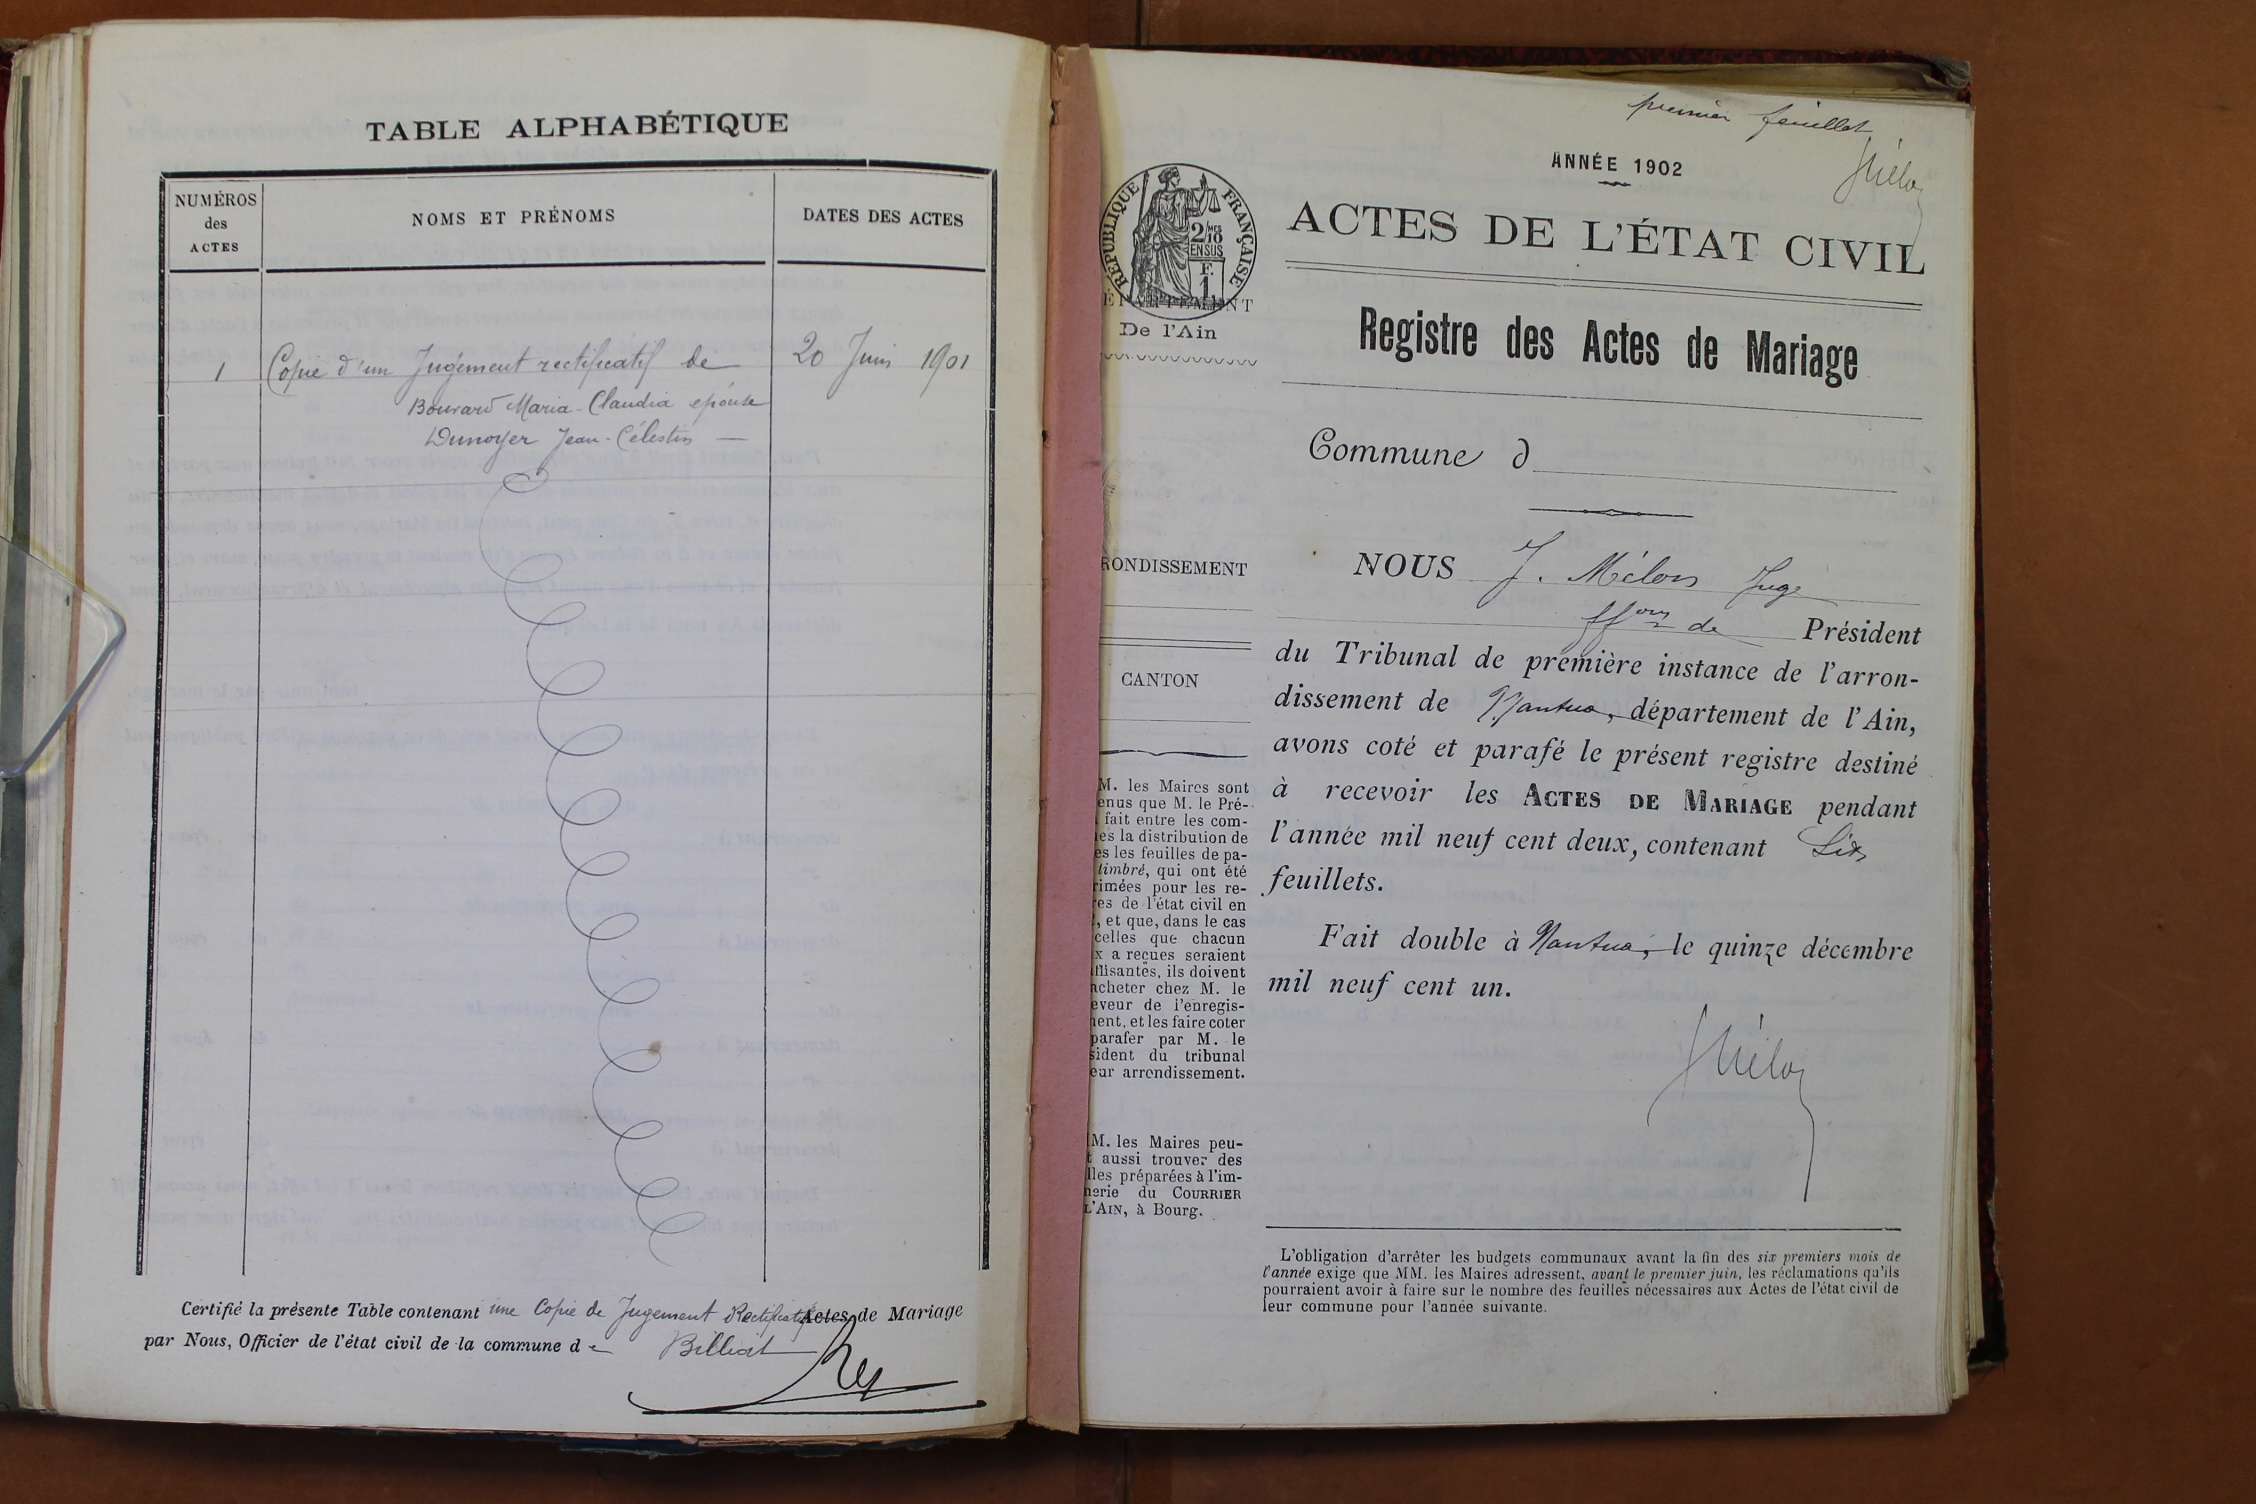 TABLE ALPHABÉTIQUE
NUMÉROS
des
ACTES
NOMS ET PRÉNOMS
DATES DES ACTES
1 Copie d'un Jugement rectificatif de 20 Juin 1901
Bouvard Maria-Claudia épouse
Dunoyer Jean-Célestin —
Certifié la présente Table contenant une Copie de Jugement Rectificatif Actes de Mariage
par Nous, Officier de l'état civil de la commune de Billiat
Rey
premier feuillet
ANNÉE 1902
RÉPUBLIQUE FRANÇAISE
2/10
MES
EN SUS
F.
1
ÉPARTEMENT
De l'Ain
ACTES DE L'ÉTAT CIVIL
Registre des Actes de Mariage
Commune d
RONDISSEMENT
CANTON
M. les Maires sont
enus que M. le Pré-
fait entre les com-
es la distribution de
es les feuilles de pa-
timbré, qui ont été
rimées pour les re-
res de l'état civil en
, et que, dans le cas
celles que chacun
x a reçues seraient
ffisantes, ils doivent
acheter chez M. le
eveur de l'enregis-
ment, et les faire coter
parafer par M. le
sident du tribunal
eur arrondissement.
M. les Maires peu-
t aussi trouver des
lles préparées à l'im-
merie du COURRIER
L'AIN, à Bourg.
NOUS J. Mélon Juge
ffons de Président
du Tribunal de première instance de l'arron-
dissement de Nantua, département de l'Ain,
avons coté et parafé le présent registre destiné
à recevoir les ACTES DE MARIAGE pendant
l'année mil neuf cent deux, contenant Six
feuillets.
Fait double à Nantua, le quinze décembre
mil neuf cent un.
L'obligation d'arrêter les budgets communaux avant la fin des six premiers mois de
l'année exige que MM. les Maires adressent, avant le premier juin, les réclamations qu'ils
pourraient avoir à faire sur le nombre des feuilles nécessaires aux Actes de l'état civil de
leur commune pour l'année suivante.